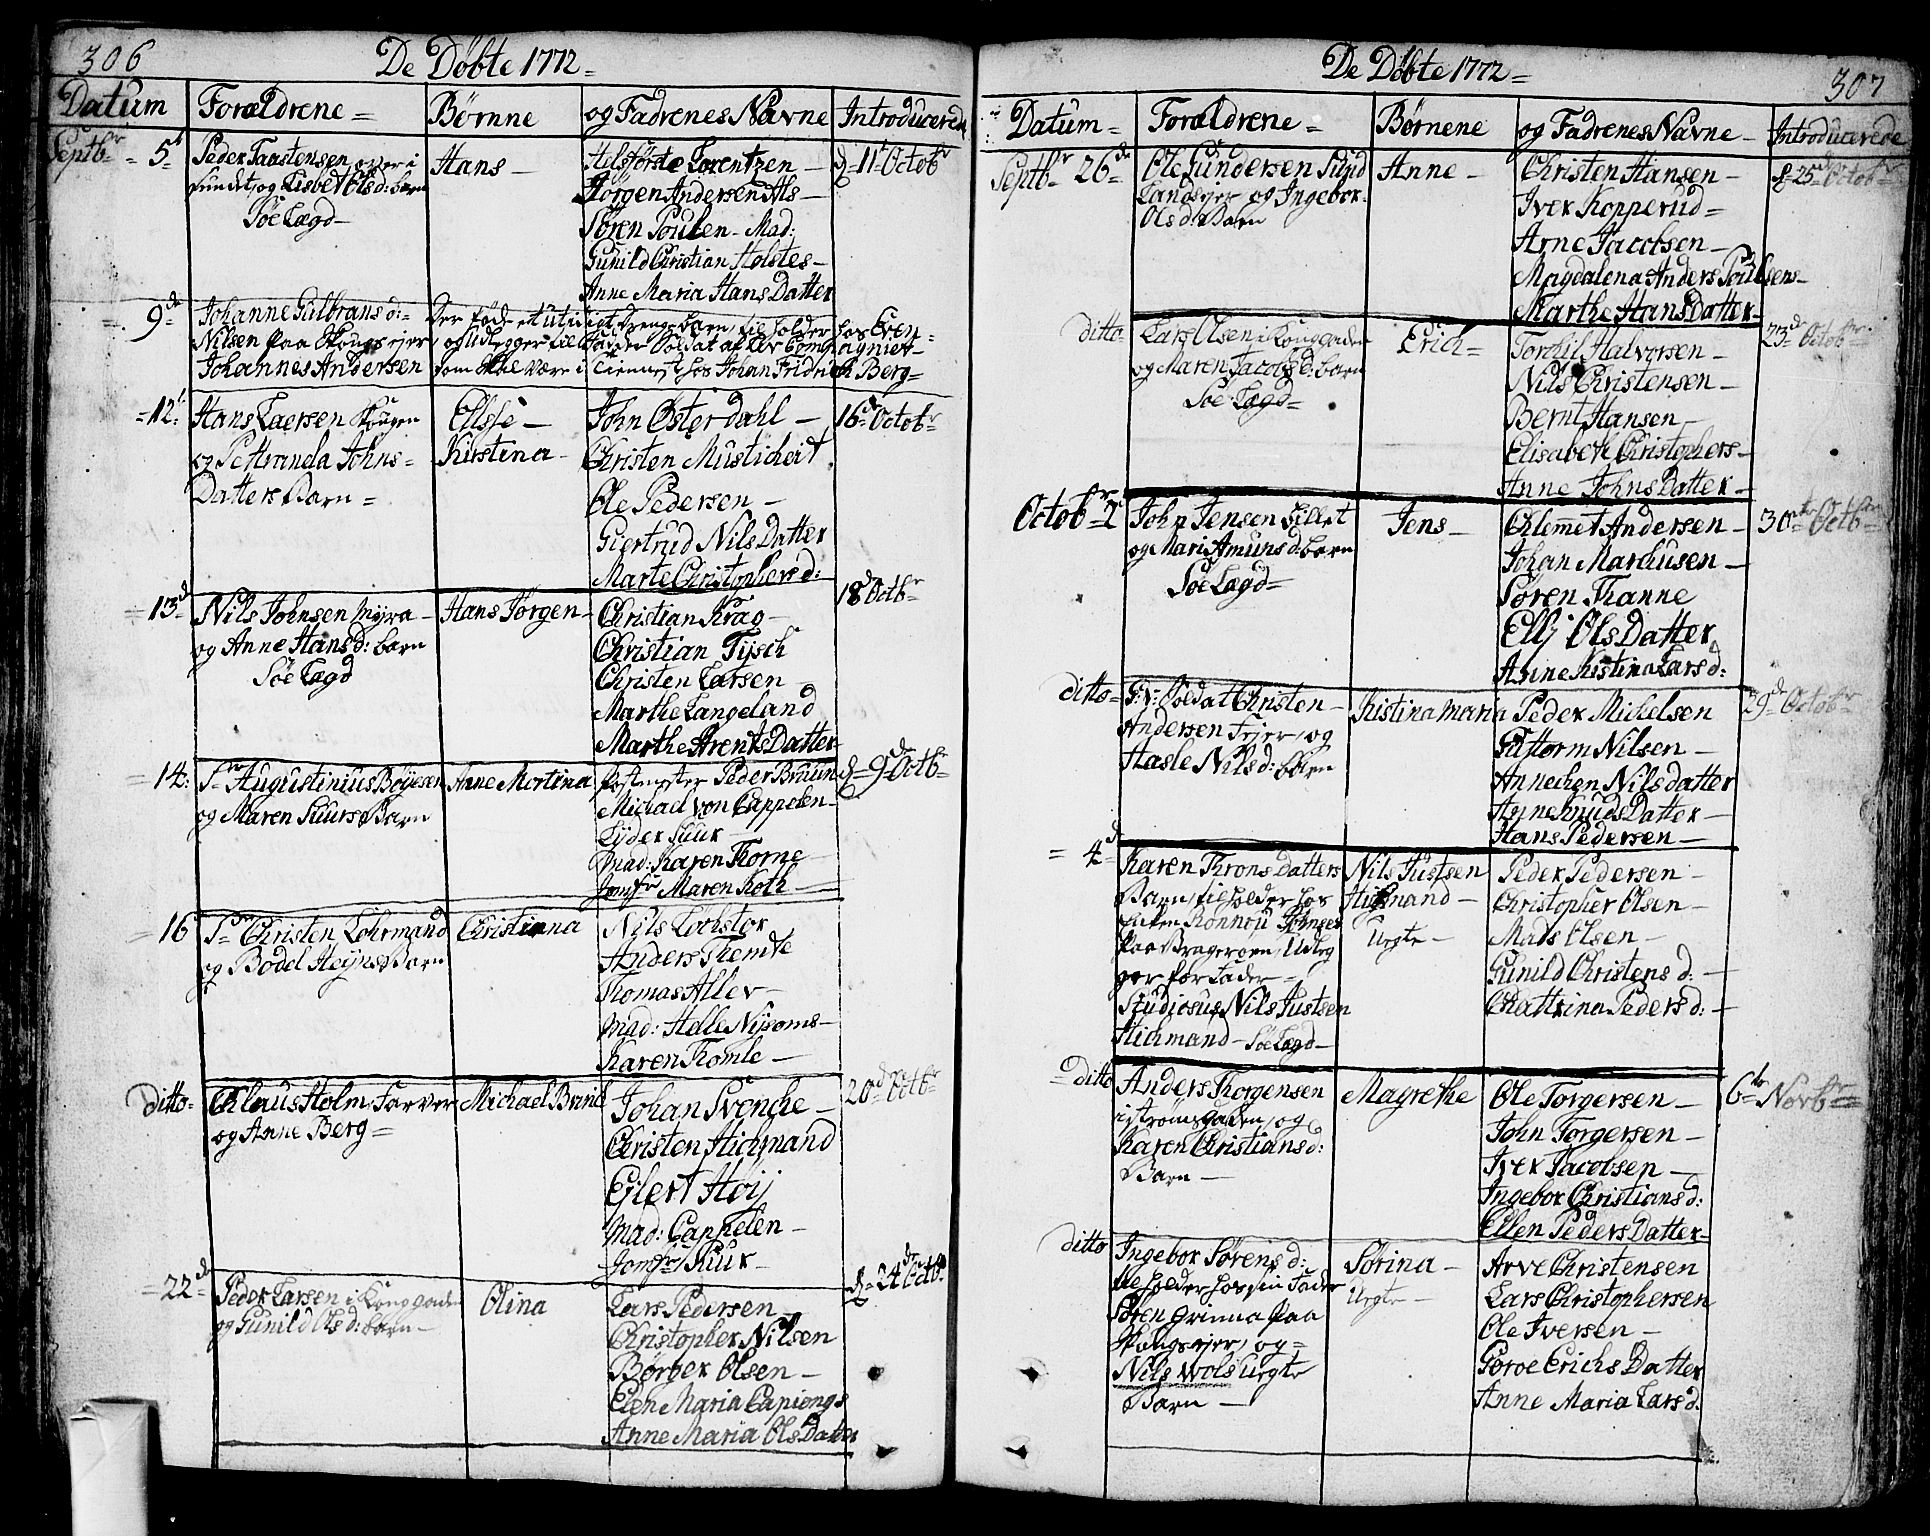 306
De Døbte 1772 =
Datum Forældrene = Børnne og FadrenesNavne Introducerede
Septbr = 5t
Peder Taastensen over i
Sundet, og Lisbet Olsd: barn
Søe Lægd –
Hans –
Helstørste Lorentzen –
Jørgen Andersen Als –
Søren Poulsen – Mad:
Gunild Christian Holstes –
Anne Maria Hans Datter
d 11t Octobr
9de
Johanne Gulbransd: =
Nilsen paa Kongsejer,
Johannes Andersen
Der fød et utrigt Drengebarn, til holder hos Even =
og udlegger til Fader Soldat af Liv Compagniet –
som skal være i Tienneste hos Johan Fridrich Berg =
= 12t
Hans Laersen Skougen
og Petranda Johns =
Datters Barn =
Ellsse –
Kirstina –
John Østerdahl –
Christen Mustichert
Ole Pedersen –
Giertrud Nils Datter
Marte Christophersd:
16d Octobr
= 13d
Nils Johnsen Myra –
og Anne Hansd: barn
Søe Lægd
Hans Jørgen –
Christian Krag –
Christian Tysch
Christen Larsen
Marthe Langeland
Marthe Arents Datter
18d Octbr
= 14:
Sr Augustinius Bøyesen
og Maren Suurs Barn
Anne Mortina
Postmester Peder Bruun
Michael von Cappelen –
Lyder Suur –
Mad: Karen Thorne –
Jomfr Maren Koth –
d 9de Octbr
= 16
Sr Christen Lohrmand
og Bodel Heyns Barn
Christianna
Nils Lochstor
Anders Themte
Thomas Aller –
Mad: Helle Nysoms –
Karen Thomle –
Ditto –
Chlaus Holm, Farver
og Anne Berg =
Michael Brind
Johan Svenche –
Christen Hichmand
Eilert Høij
Mad: Cappelen –
Jomfr Suur –
20d Octbr
= 22de
Peder Larsen i Konggaden
og Gunild Olsd: barn –
Olina
Lars Pedersen –
Christopher Nilsen
Børger Olsen –
Elen Maria Capiengs
Anne Maria Ols Datter
d 24de Octbr
De Døbte 1772 =
307
Datum = Forældrene = Børnene og FadrenesNavne – Introducerede
Septbr 26de
Ole Gundersen Sund
Landsejer og Ingebor
Olsd: Barn
Anne –
Christen Hansen –
Iver Kopperud =
Arne Jacobsen –
Magdalena Anders Poulsens –
Marthe Hans Datter –
d 25de Octobr
ditto
Lars Olsen i Konggaden
og Maren Jacobsd: barn
Søe Lægd =
Erich =
Torchil Halvorsen –
Nils Christensen –
Bernt Hansen –
Elisabeth Christophers –
Anne Johns Datter –
23de Octobr
Octobr = 2
John Jensen Fillet
og Mari Amunsd: barn
Søe Lægd =
Jens –
Chlemet Andersen –
Johan Marchusen –
Søren Thanne
Ellj Ols Datter
Anne Kistina Larsd:
30te Octbr
ditto
G: V: Soldat Christen –
Andersen Fejer, og
Hasle Nilsd: barn
Kistina Maria
Peder Michelsen
Guttorm Nilsen –
Annechen Nilsdatter
Anne Knuds Datter –
Hans Pedersen –
29de Octobr
= 4de
Karen Throns Datters
Barn, til holder hos
Enken Ronnou Johnser
paa Bragernæs, Udleg
ger for Fader –
Studiosus Nils Justsen
Hichmand – Søe Lægd –
Nils Justsen
Hichmand –
Uegte –
Peder Pedersen –
Christopher Olsen –
Mads Olsen –
Gunild Christens d. –
Chattrina Peders d: –
= ditto
Anders Thorgensen
i Strømsgaden, og
Karen Christiansd:
Barn –
Magrethe
Ole Torgersen –
John Torgersen –
Iver Jacobsen –
Ingebor Christiansd:
Ellen Peders Datter –
6te Novbr =
ditto
Ingebor Sørensd:
tilholder hos sin Fader
Søren Grinna paa
Kongsejer, og =
Nils Wols Uegte
Barn –
Sørina –
Uegte –
Arve Christensen
Lars Christophersen
Ole Iversen –
Goroe Erichs Datter
Anne Maria Larsd.